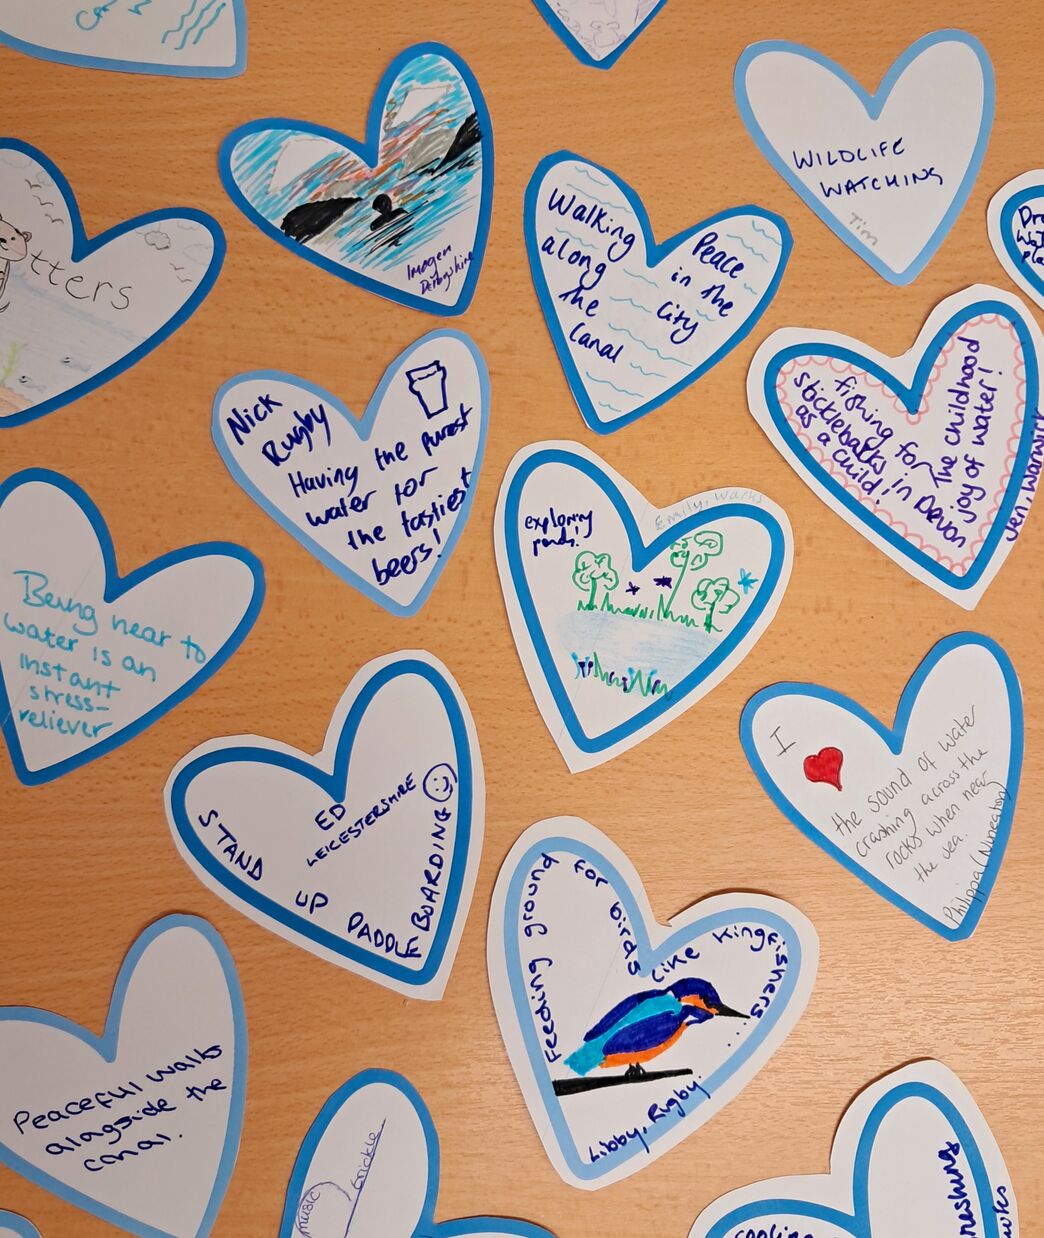 WILDLIFE
WATCHING
Tim
Imogen
Derbyshire
Walking
along
the
canal
Peace
in the
City
tters
Nick
Rugby
Having the purest
water for
the tastiest
beers!
fishing for
sticklebacks in Devon
as a child!
The childhood
joy of water!
Jen, Warwick
exploring
ponds!
Emily, Warks
Being near to
water is an
instant
stress-
reliever
STAND UP PADDLE BOARDING
ED
LEICESTERSHIRE
I
the sound of water
crashing across the
rocks when near
the sea.
Philippa (Nuneaton)
Feeding ground for birds like Kingfishers...
Libby, Rugby.
Peaceful walks
alongside the
canal.
music
trickle
cooling